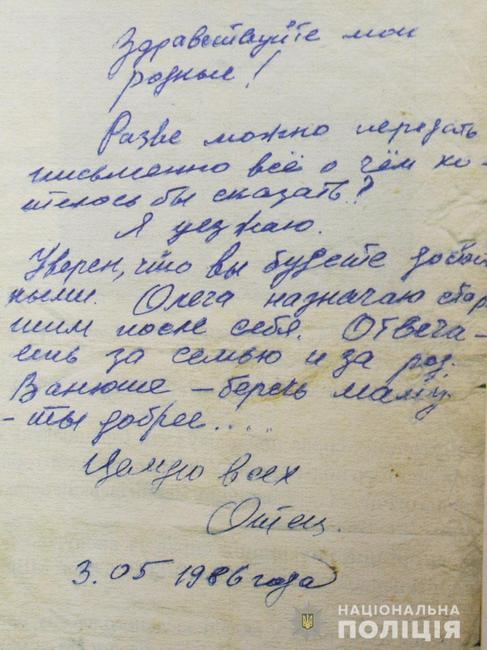 Здравствуйте мои
родные!
Разве можно передать
письменно всё о чём хо-
телось бы сказать?
Я уезжаю.
Уверен, что вы будете достой
ными. Олега назначаю стар
шим после себя. Отвеча-
ешь за семью и за род.
Ванюше – береги маму
– ты добрее.....
Целую всех
Отец.
3.05 1986 года
НАЦІОНАЛЬНА
ПОЛІЦІЯ